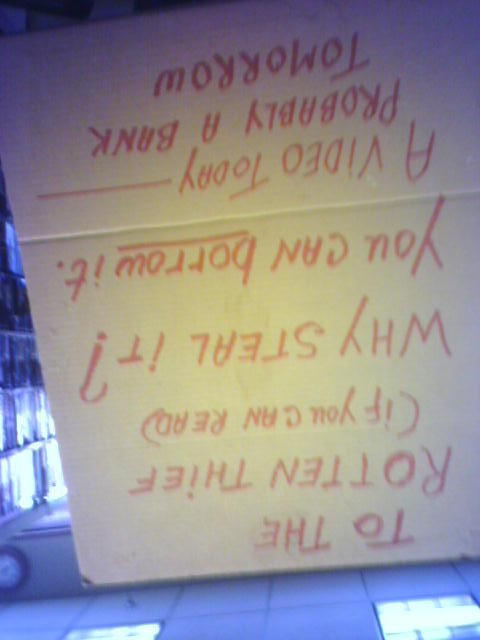 TO THE
ROTTEN THIEF
(if you CAN READ)
WHY STEAL IT?
You CAN borrow it.
A ViDEO TODAY
PROBABLY A BANK
TOMORROW